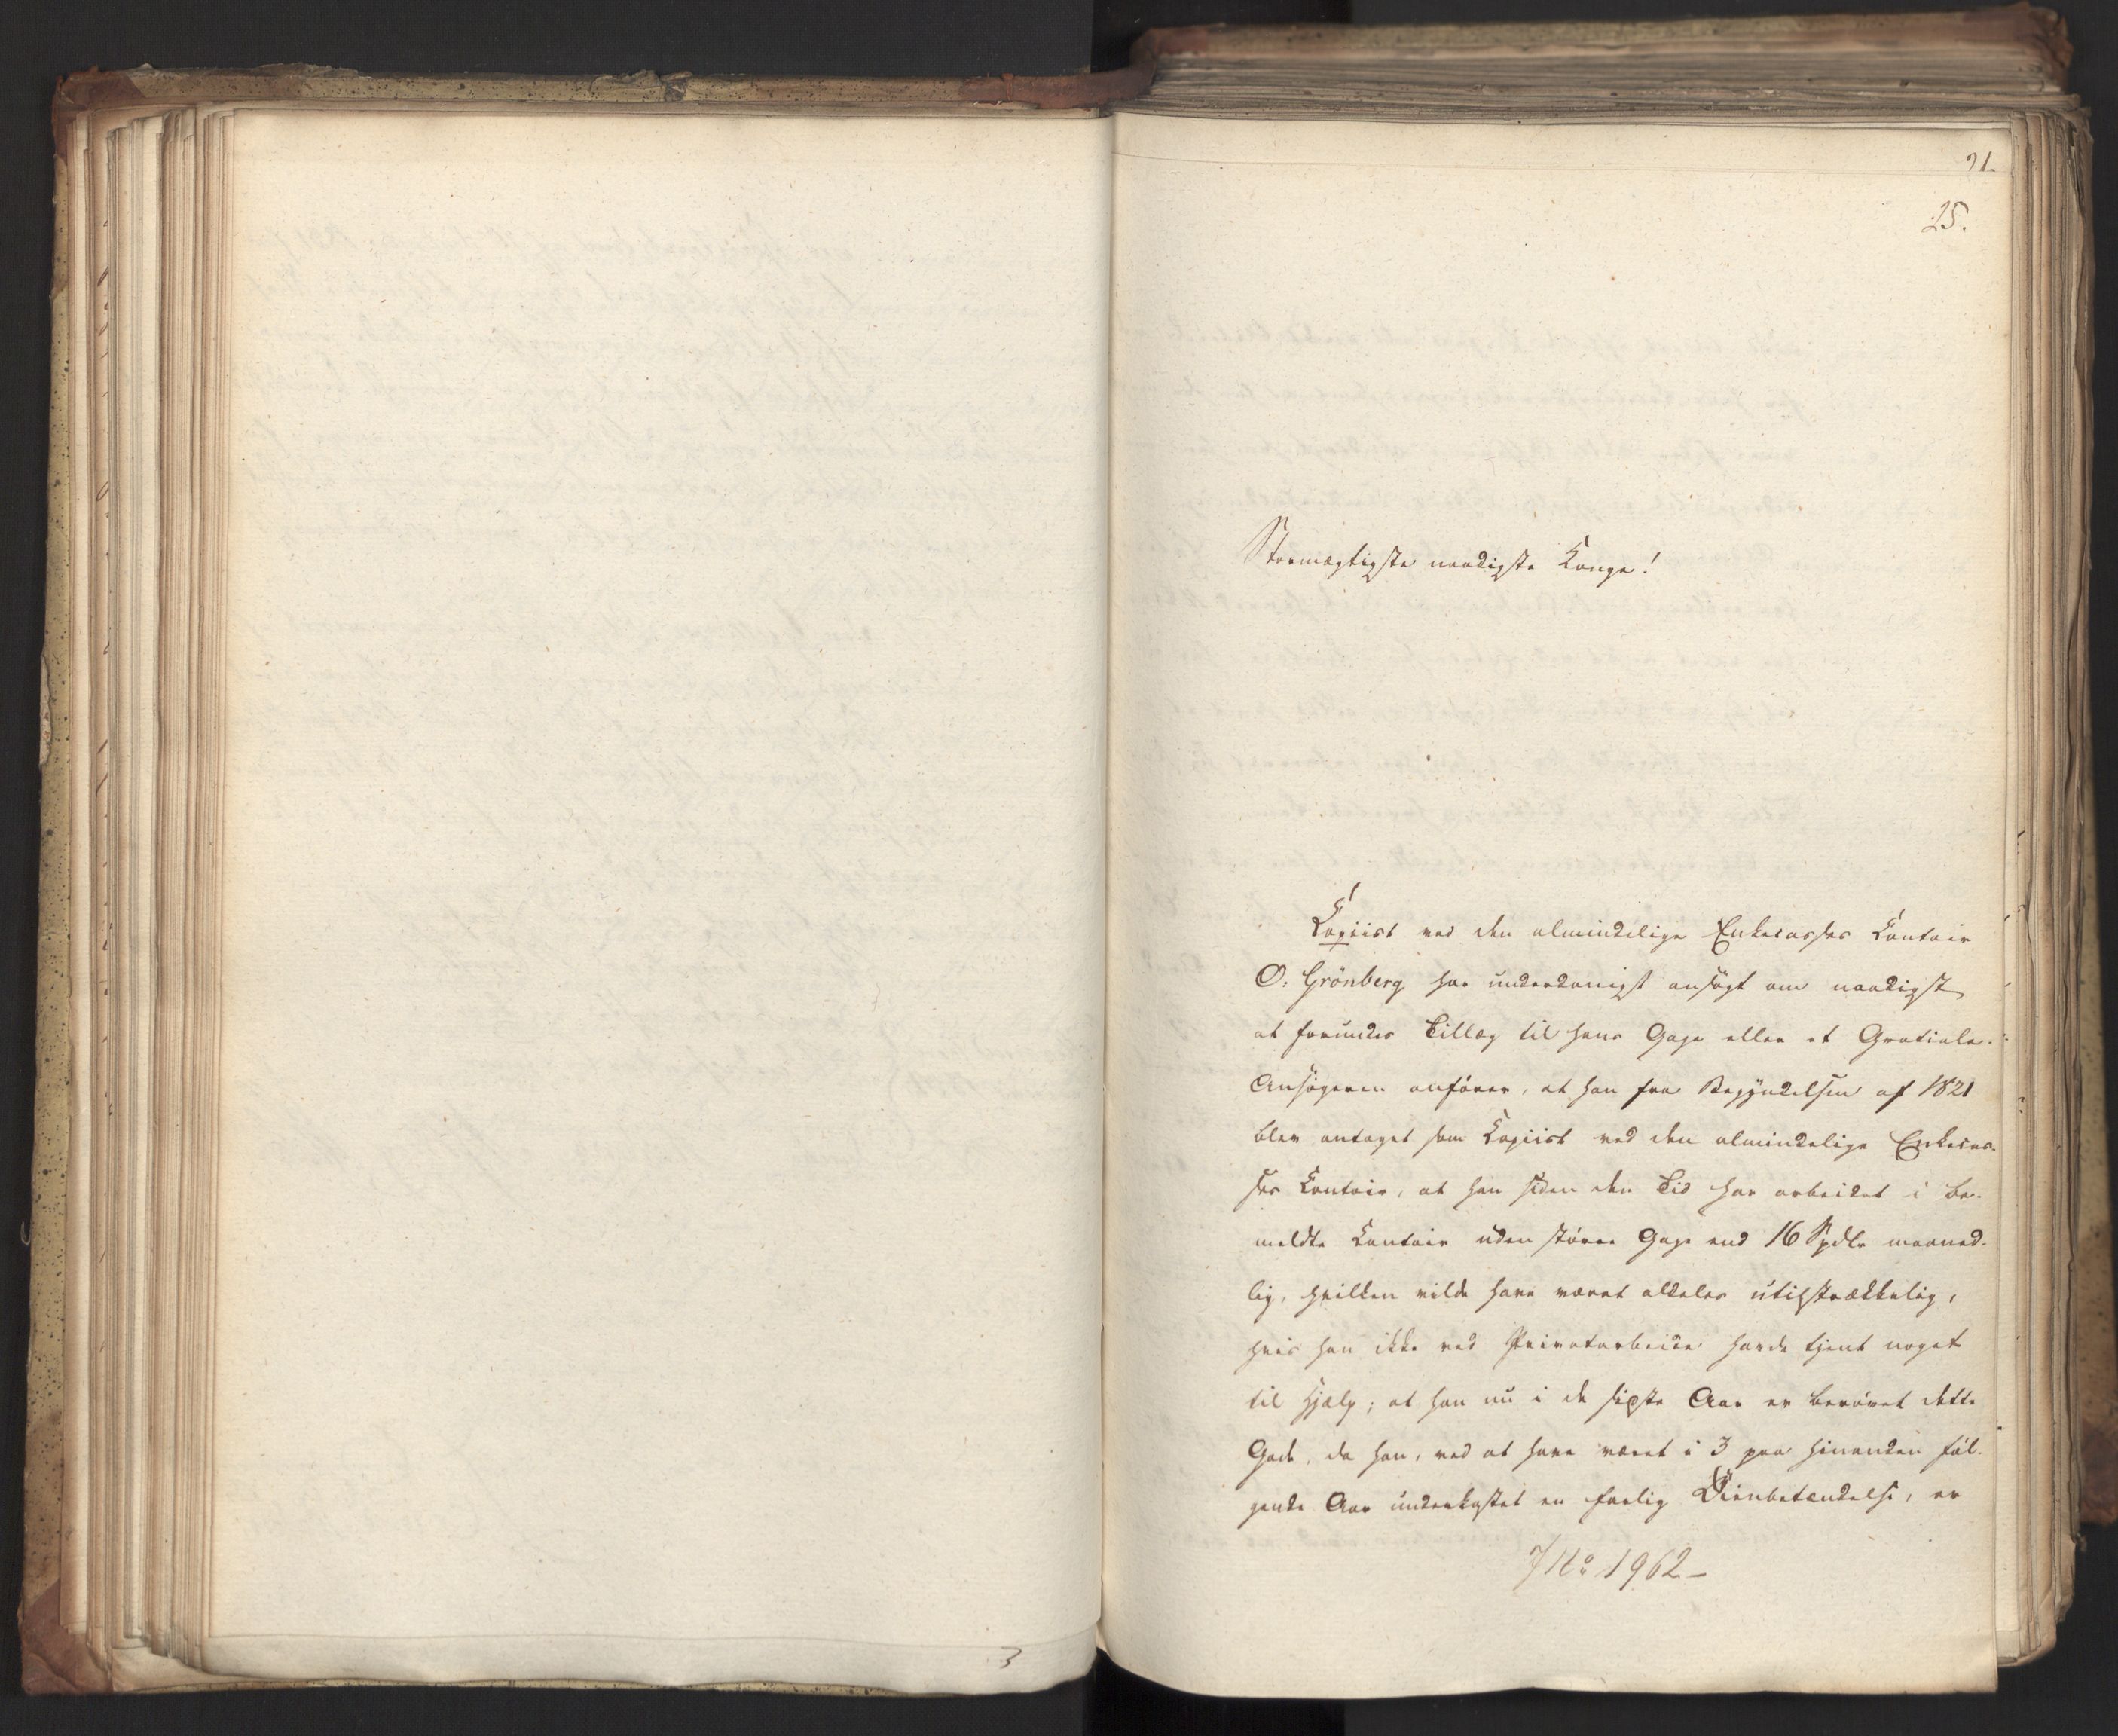 21.
25.
Stormægtigste naadigste Konge!
Kopiist ved den almindelige Enkecasses Contoir
O: Grönberg har underdanigst ansøgt om naadigst
at forundes Tillæg til hans Gage eller et Gratiale.
Ansøgeren anfører, at han fra Begyndelsen af 1821
blev antaget som Kopiist ved den almindelige Enkecas-
ses Contoir, at han siden den Tid har arbeidet i be-
meldte Contoir uden større Gage end 16 Spdlr maaned-
lig, hvilken vilde have været aldeles utilstrækkelig,
hvis han ikke ved Privatarbeide havde tjent noget
til Hjælp; at han nu i de sidste Aar er berøvet dette
Gode, da han, ved at have været i 3 paa hinanden føl-
gende Aar underkastet en farlig Öienbetændelse, er
No 1962-
3